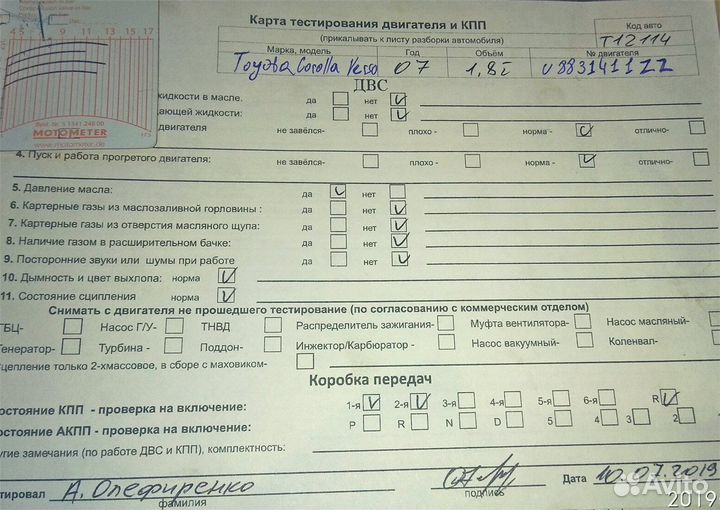 4 5 7 9 11 13 15 17
Best.-Nr. 5 1341 248 00
MOTOMETER
www.motometer.de
Карта тестирования двигателя и КПП
(прикалывать к листу разборки автомобиля)
Код авто
T12114
Марка, модель Год Объём № двигателя
Toyota Corolla Verso 07 1,8i U883141122
ДВС
жидкости в масле. да нет V
ающей жидкости: да нет V
двигателя не завёлся- плохо - норма - V отлично-
4. Пуск и работа прогретого двигателя: не завёлся- плохо - норма - V отлично-
5. Давление масла: да V нет
6. Картерные газы из маслозаливной горловины : да нет V
7. Картерные газы из отверстия масляного щупа: да нет V
8. Наличие газом в расширительном бачке: да нет V
9. Посторонние звуки или шумы при работе да нет V
10. Дымность и цвет выхлопа: норма V
11. Состояние сцепления норма V
Снимать с двигателя не прошедшего тестирование (по согласованию с коммерческим отделом)
ГБЦ- Насос Г/У- ТНВД Распределитель зажигания- Муфта вентилятора- Насос масляный-
Генератор- Турбина - Поддон- Инжектор/Карбюратор - Насос вакуумный- Коленвал-
сцепление только 2-хмассовое, в сборе с маховиком-
Коробка передач
остояние КПП - проверка на включение: 1-я V 2-я V 3-я 4-я 5-я 6-я R V
остояние АКПП - проверка на включение: P R N D 5 4 3 2
угие замечания (по работе ДВС и КПП), комплектность:
тировал А. Олефиренко Дата 10.07.2019
фамилия подпись
Avito
2019